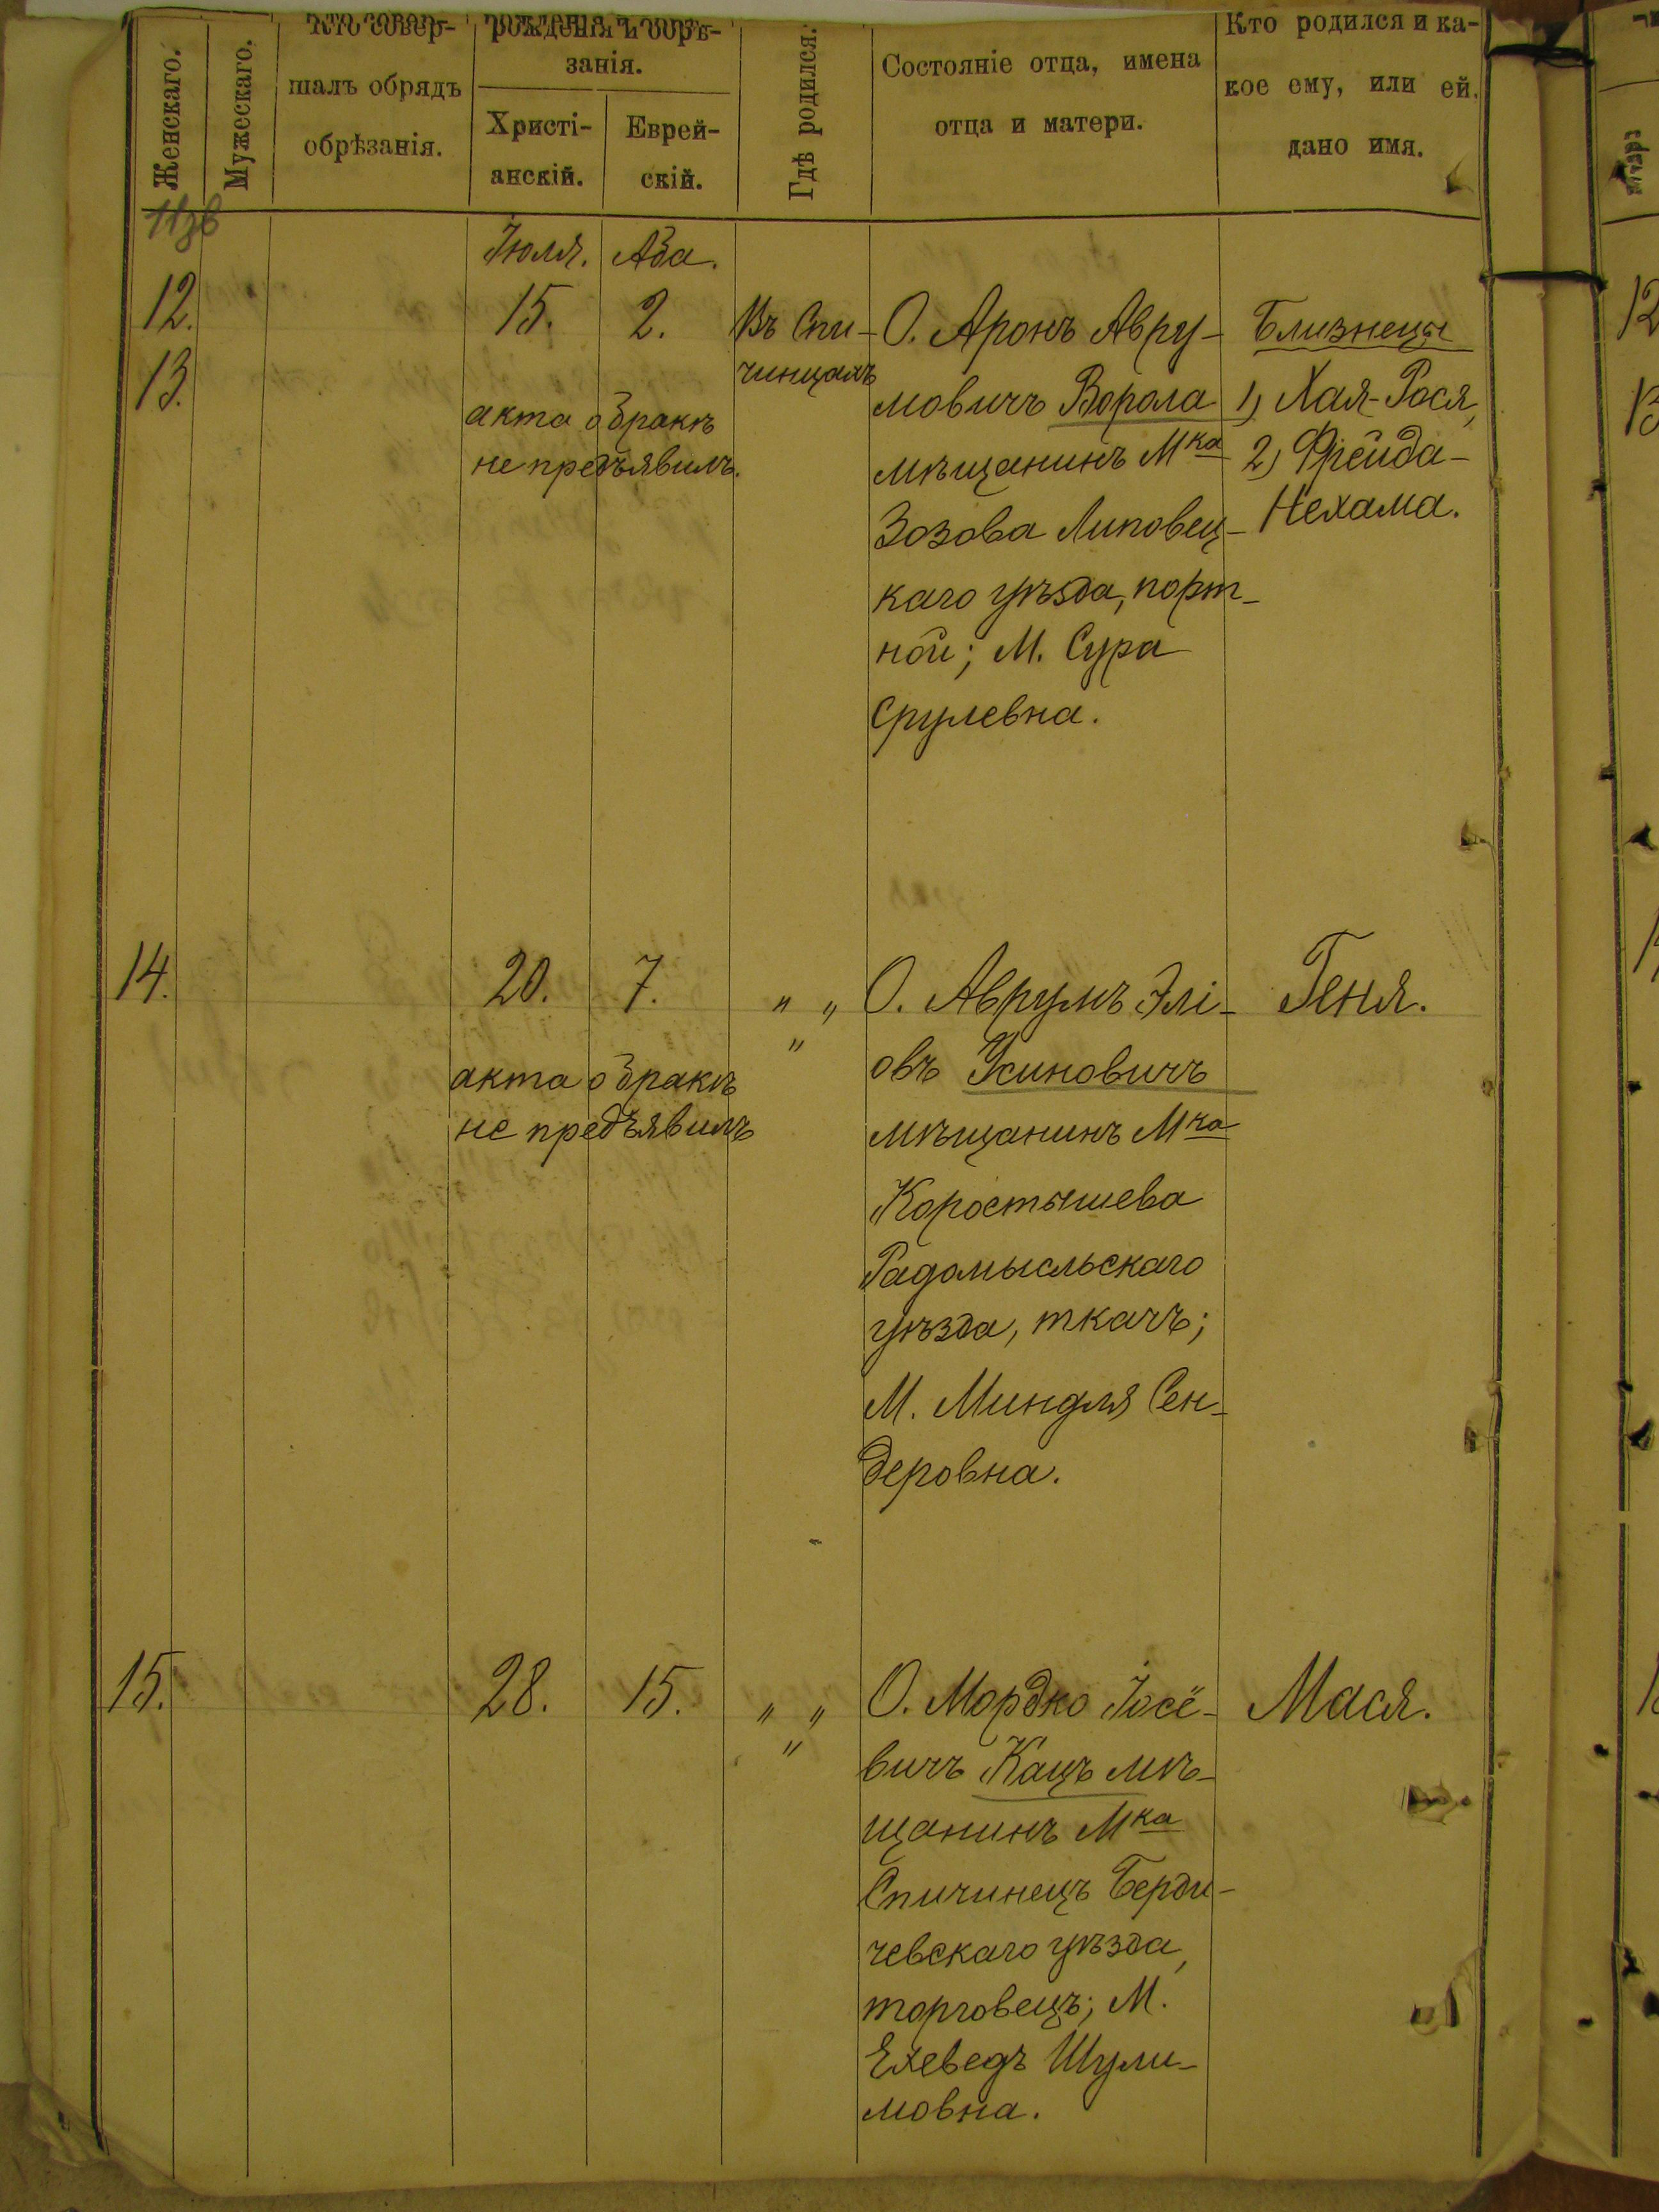 Женскаго.
Мужескаго.
Кто совер-
шалъ обрядъ
обрѣзанія.
рожденія и обрѣ-
занія.
Христі-
анскій.
Еврей-
скій.
Гдѣ родился.
Состояніе отца, имена
отца и матери.
Кто родился и ка-
кое ему, или ей,
дано имя.
Іюля. Ава.
12. 15. 2. Въ Спи-
чинцахъ
13.
акта о бракѣ
не предъявилъ.
О. Аронъ Авру-
мовичъ Ворола
мѣщанинъ Мка
Зозова Липовец-
каго уѣзда, порт-
ной; М. Сура
Срулевна.
Близнецы
1) Хая-Рося,
2) Фрейда-
Нехама.
14. 20. 7. " "
"
акта о бракѣ
не предъявилъ
О. Аврумъ Элі-
овъ Усиновичъ
мѣщанинъ Мка
Коростышева
Радомысльскаго
уѣзда, ткачъ;
М. Миндля Сен-
деровна.
Геня.
15. 28. 15. " "
"
О. Мордко Іосё-
вичъ Кацъ мѣ-
щанинъ Мка
Спичинецъ Берди-
чевскаго уѣзда,
торговецъ; М.
Ехеведъ Шули-
мовна.
Мася.
12
13